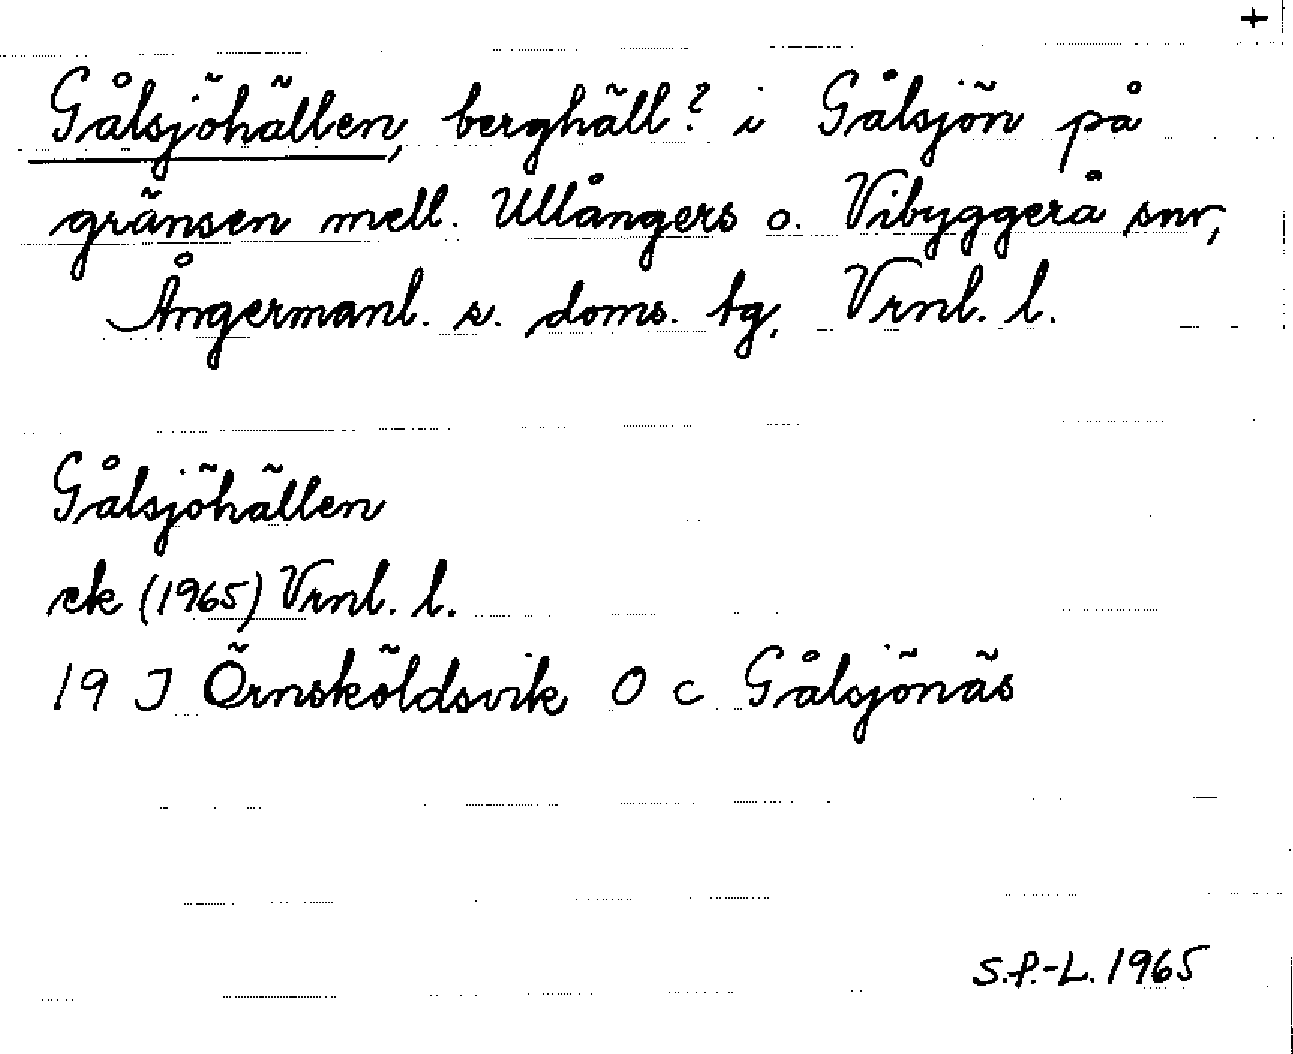 +
Gålsjöhällen, berghäll? i Gålsjön på
gränsen mell. Ullångers o. Vibyggerå snr,
Ångermanl. s. doms. tg, Vrnl. l.
Gålsjöhällen
ek (1965) Vrnl. l.
19 J Örnsköldsvik O c Gålsjönäs
S.P.-L. 1965